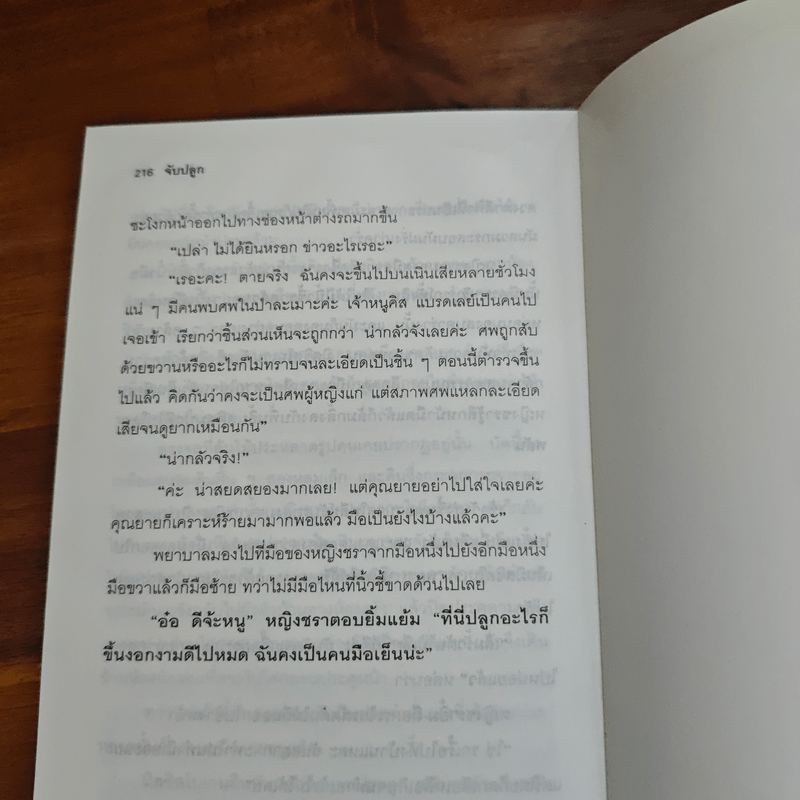 216 จับปลูก
ชะโงกหน้าออกไปทางช่องหน้าต่างรถมากขึ้น
“เปล่า ไม่ได้ยินหรอก ข่าวอะไรเรอะ”
“เรอะคะ! ตายจริง ฉันคงจะขึ้นไปบนเนินเสียหลายชั่วโมง
แน่ ๆ มีคนพบศพในป่าละเมาะค่ะ เจ้าหนูคิส แบรดเลย์เป็นคนไป
เจอเข้า เรียกว่าชิ้นส่วนเห็นจะถูกกว่า น่ากลัวจังเลยค่ะ ศพถูกสับ
ด้วยขวานหรืออะไรก็ไม่ทราบจนละเอียดเป็นชิ้น ๆ ตอนนี้ตำรวจขึ้น
ไปแล้ว คิดกันว่าคงจะเป็นศพผู้หญิงแก่ แต่สภาพศพแหลกละเอียด
เสียจนดูยากเหมือนกัน”
“น่ากลัวจริง!”
“ค่ะ น่าสยดสยองมากเลย! แต่คุณยายอย่าไปใส่ใจเลยค่ะ
คุณยายก็เคราะห์ร้ายมามากพอแล้ว มือเป็นยังไงบ้างแล้วคะ”
พยาบาลมองไปที่มือของหญิงชราจากมือหนึ่งไปยังอีกมือหนึ่ง
มือขวาแล้วก็มือซ้าย ทว่าไม่มีมือไหนที่นิ้วชี้ขาดด้วนไปเลย
“อ๋อ ดีจ้ะหนู” หญิงชราตอบยิ้มแย้ม “ที่นี่ปลูกอะไรก็
ขึ้นงอกงามดีไปหมด ฉันคงเป็นคนมือเย็นน่ะ”